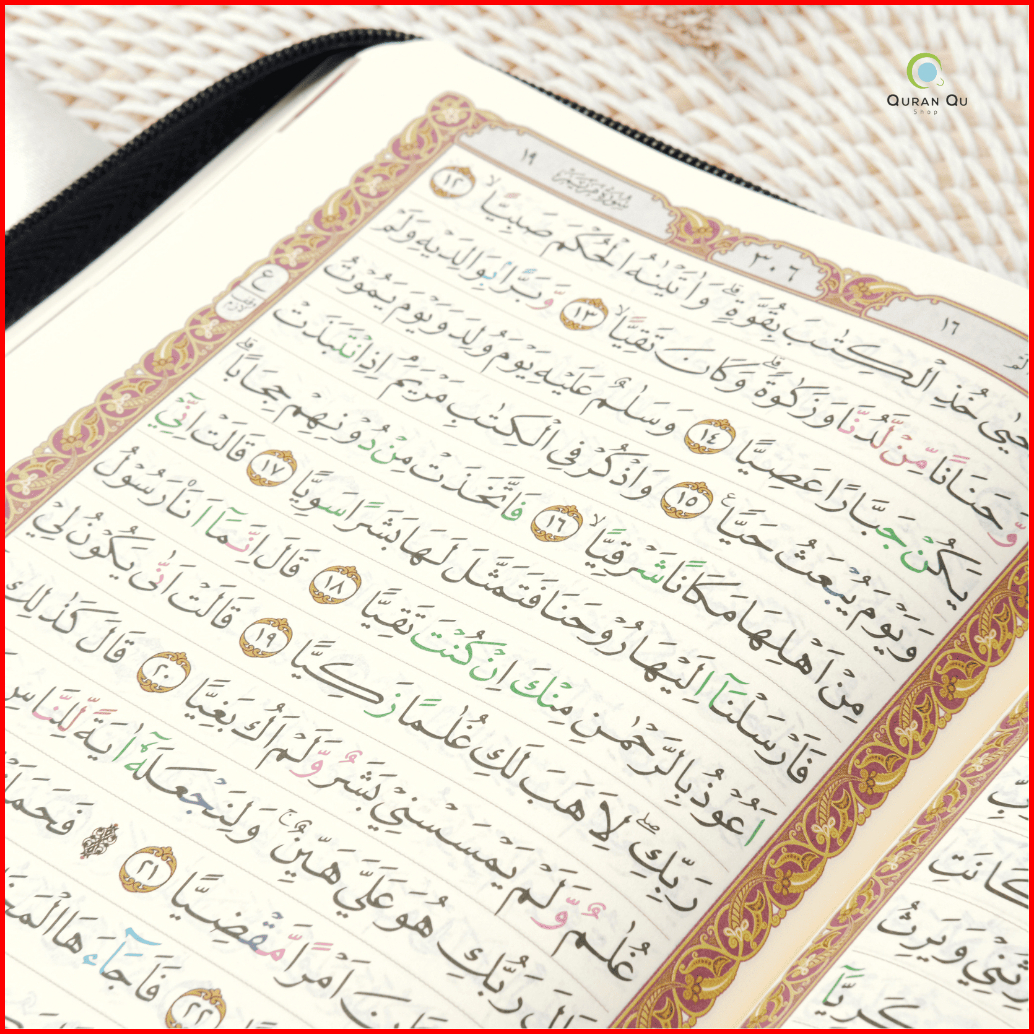 QURAN QU
Shop
١٦
٣٠٦
سُوْرَةُ مَرْيَمَ ١٩
ع
وقف لازم
خُذِ الْكِتٰبَ بِقُوَّةٍ ۗ وَاٰتَيْنٰهُ الْحُكْمَ صَبِيًّاۙ ١٢
وَّحَنَانًا مِّنْ لَّدُنَّا وَزَكٰوةً ۗ وَكَانَ تَقِيًّاۙ ١٣ وَّبَرًّاۢ بِوَالِدَيْهِ وَلَمْ
يَكُنْ جَبَّارًا عَصِيًّا ١٤ وَسَلٰمٌ عَلَيْهِ يَوْمَ وُلِدَ وَيَوْمَ يَمُوْتُ
وَيَوْمَ يُبْعَثُ حَيًّا ࣖ ١٥ وَاذْكُرْ فِى الْكِتٰبِ مَرْيَمَۘ اِذِ انْتَبَذَتْ
مِنْ اَهْلِهَا مَكَانًا شَرْقِيًّاۙ ١٦ فَاتَّخَذَتْ مِنْ دُوْنِهِمْ حِجَابًاۗ
فَاَرْسَلْنَآ اِلَيْهَا رُوْحَنَا فَتَمَثَّلَ لَهَا بَشَرًا سَوِيًّا ١٧ قَالَتْ اِنِّيْٓ
اَعُوْذُ بِالرَّحْمٰنِ مِنْكَ اِنْ كُنْتَ تَقِيًّا ١٨ قَالَ اِنَّمَآ اَنَا۠ رَسُوْلُ
رَبِّكِۖ لِاَهَبَ لَكِ غُلٰمًا زَكِيًّا ١٩ قَالَتْ اَنّٰى يَكُوْنُ لِيْ
غُلٰمٌ وَّلَمْ يَمْسَسْنِيْ بَشَرٌ وَّلَمْ اَكُ بَغِيًّا ٢٠ قَالَ كَذٰلِكِ
رَبُّكِ هُوَ عَلَيَّ هَيِّنٌۚ وَلِنَجْعَلَهٗٓ اٰيَةً لِّلنَّاسِ
اَمْرًا مَّقْضِيًّا ٢١
٢٢ فَاَجَاۤءَهَا
كَانَتِ
وَيَرِثُ